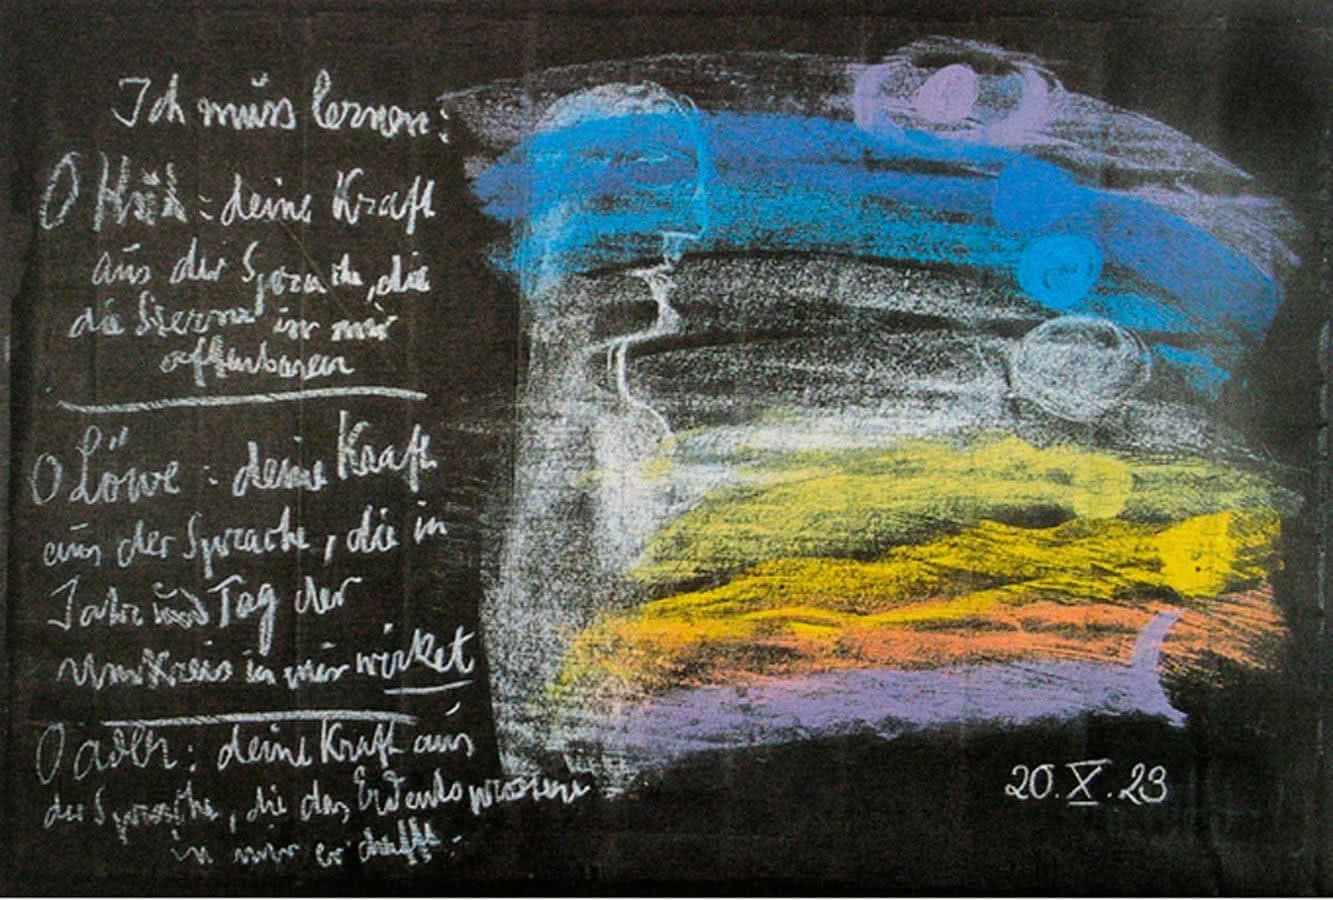 Ich muss lernen:
O Kuh : deine Kraft
aus der Sprache, die
die Sterne in mir
offenbaren
O Löwe : deine Kraft
aus der Sprache, die in
Jahr und Tag der
Umkreis in mir wirket
O adler : deine Kraft aus
der Sprache, die das
in mir er
20.X.23